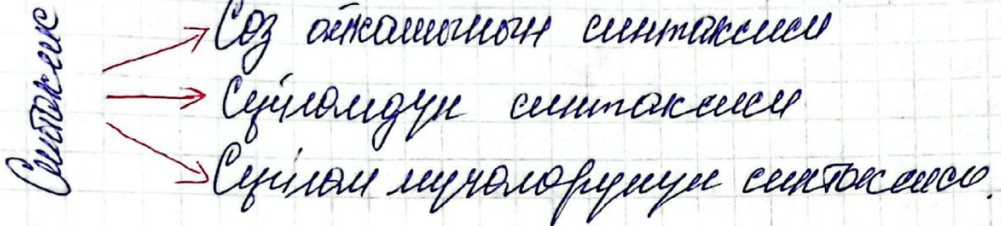 Синтаксис
Сөз айкашынын синтаксиси
Сүйлөмдүн синтаксиси
Сүйлөм мүчөлөрүнүн синтаксиси.